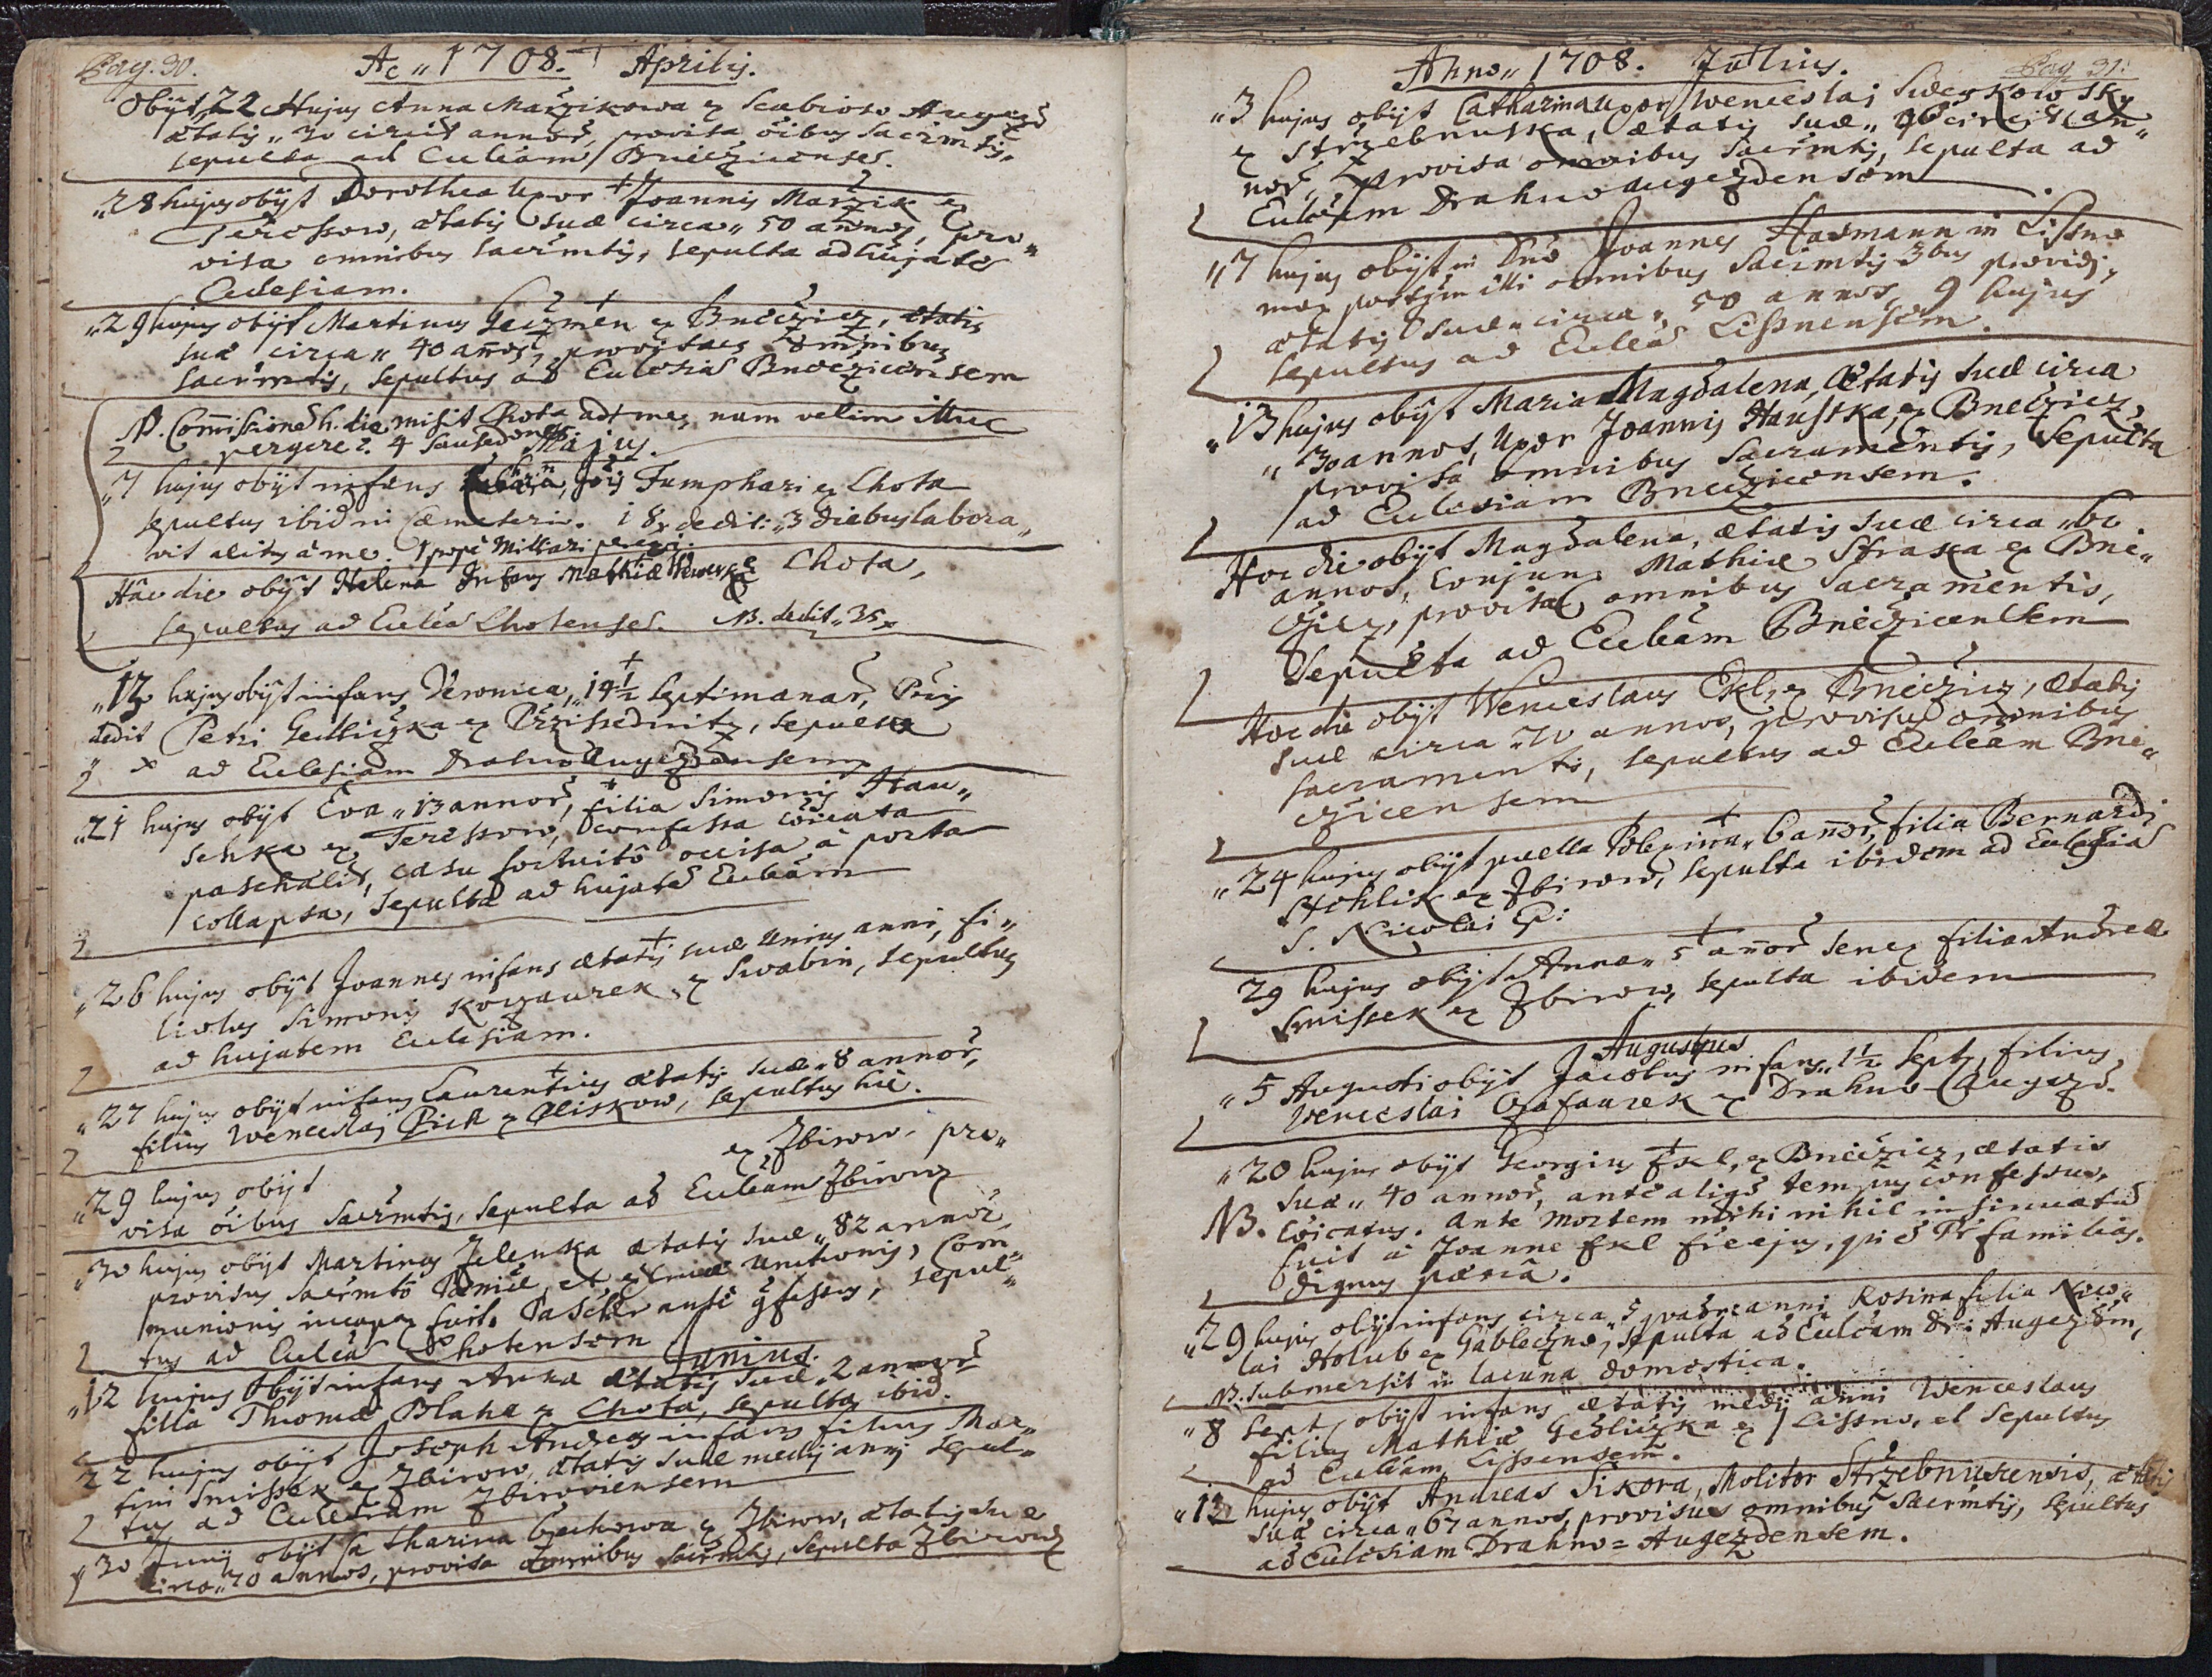 Pag. 30.
Ao 1708. Aprilis.
Obijt 22 Hujus Anna Maržikowa ex Scabioso Augezd
ætatis 30 circit annoř, provisa oibus Sacrmtis
sepulta ad Eccleam Bnecžicensem.
28 hujus obijt Dorothea Uxor Joannis Maržik ex
Terossow, ætatis suæ circa 50 annos, pro
visa omnibus sacrmtis, sepulta ad hujatem
Ecclesiam.
29 hujus obijt Martinus ex Bnecžicz, ætatis
suæ circa 40 anos, provisus omnibus
sacrmtis, sepultus ad Ecclesiã Bnecžicensem
N. Comissione h. die misit Chota ad me, num velim illuc
pergere? 4
Majus.
7 hujus obijt infans Jois Tumphari ex Chota
sepultus ibid in Cæmeterio. 18x dedit: 3 diebus labora
vit alitus à me.
Hac die obijt Helena Infans Mathiæ ex Chota,
sepultus ad Eccleã Chotensem. NB. dedit 35x
12 hujus obijt infans Veronica, 14 1/2 septimanař,
dedit Petri Gedlicžka ex Przissednitz, sepulta
x ad Ecclesiam Drahno Augezdensem
21 hujus obijt Eva 13 annoř, filia Simonis Hau
schka ex Teressow, confessa coicata
paschalit, casu fortuitô occisa à porta
collapsa, sepulta ad hujatem Eccleam
26 hujus obijt Joannes infans ætatis suæ Unius anni, fi
liolus Simonis Kocžaurek ex Swabin, sepultus
ad hujatem Ecclesiam.
27 hujus obijt infans Laurentius ætatis suæ 8 annoř,
filius Wenceslaj Pick ex Pliskow, sepultus hic.
29 hujus obijt ex Zbirow, pro
visa oibus Sacrmtis, sepulta ad Eccleam Zbirow
30 hujus obijt Martinus Jelenka ætatis suæ 82 annoř,
provisus sacrmtô Pœniæ, et Extmæ Unctionis, Com
munionis incapax fuit. Paschr antè cfessus, sepul
tus ad Eccleã Chotensem
Junius.
12 hujus obijt infans Anna ætatis suæ 2 annoř
filia Thomæ Blaha ex Chota, sepulta ibid.
22 hujus obijt Joseph Andreas infans filius Mar
tini Smissek ex Zbirow, ætatis suæ medij anni sepul
tus ad Eccleam Zbiroviensem
30 Junij obijt Catharina ex Zbirow, ætatis suæ
circa 70 annos, provisa omnibus sacrmtis, sepulta Zbirow
Anno 1708. Julius.
Pag 31.
3 hujus obijt Catharina uxor Wenceslaj
ex Střzebnuska, ætatis suæ circit an
noř, provisa omnibus sacrmtis, sepulta ad
Eccleam Drahno Augezdensem
7 hujus obijt in Dno Joannes Hadmann in Lissno
mox postqm illi omnibus Sacrmtis 3bus providi,
ætatis suæ circa 50 annos, 9 hujus
sepultus ad Eccleã Lissnensem.
13 hujus obijt Maria Magdalena, ætatis suæ circa
30 annos, Uxor Joannis Hauska, ex Bnecžicz,
provisa omnibus Sacramentis, sepulta
ad Ecclesiam Bnecžicensem.
Hoc die obijt Magdalena, ætatis suæ circa 60
annos, conjunx Mathiæ Straka ex Bne
cžicz, provisa omnibus sacramentis,
sepulta ad Eccleam Bnecžicensem
Hoc die obijt Wenceslaus Ekl, ex Bnecžicz, ætatis
suæ circa 70 annos, provisus omnibus
sacramentis, sepultus ad Eccleam Bne
cžicensem
24 hujus obijt puella 6 anoř, filia Bernardi
Stehlik ex Zbirow, sepulta ibidem ad Ecclesiã
S. Nicolai Ep:
29 hujus obijt Anna 5 anoř senex filia Andreæ
Smissek ex Zbirow, sepulta ibidem
Augustus
5 Augusti obijt Jacobus infans 1 1/2 Sept, filius
Wenceslai ex Drahno Augezd.
20 hujus obijt Georgius Ekl, ex Bnecžicz, ætatis
suæ 40 annoř, ante aliqd tempus confessus,
NB. coicatus. Ante mortem mihi nihil insinuatũ
fuit à Joanne Ekl fre ejus, qui e Pr familias.
dignus pœnâ.
29 hujus obijt infans circa 5 anni Rosina filia Nico
lai Holub ex Gableczno, sepulta ad Eccleam Dr: Augezdem,
NB. submersit in lacuna domestica.
8 Sept, obijt infans ætatis medij anni Wenceslaus
filius Mathiæ Gedlicžka ex Lissno, et sepultus
ad Eccleam Lissensem.
12 hujus obijt Andreas Sikora, Molitor Střzebnucensis, ætatis
suæ circa 67 annos, provisus omnibus Sacrmtis, sepultus
ad Ecclesiam Drahno=Augezdensem.